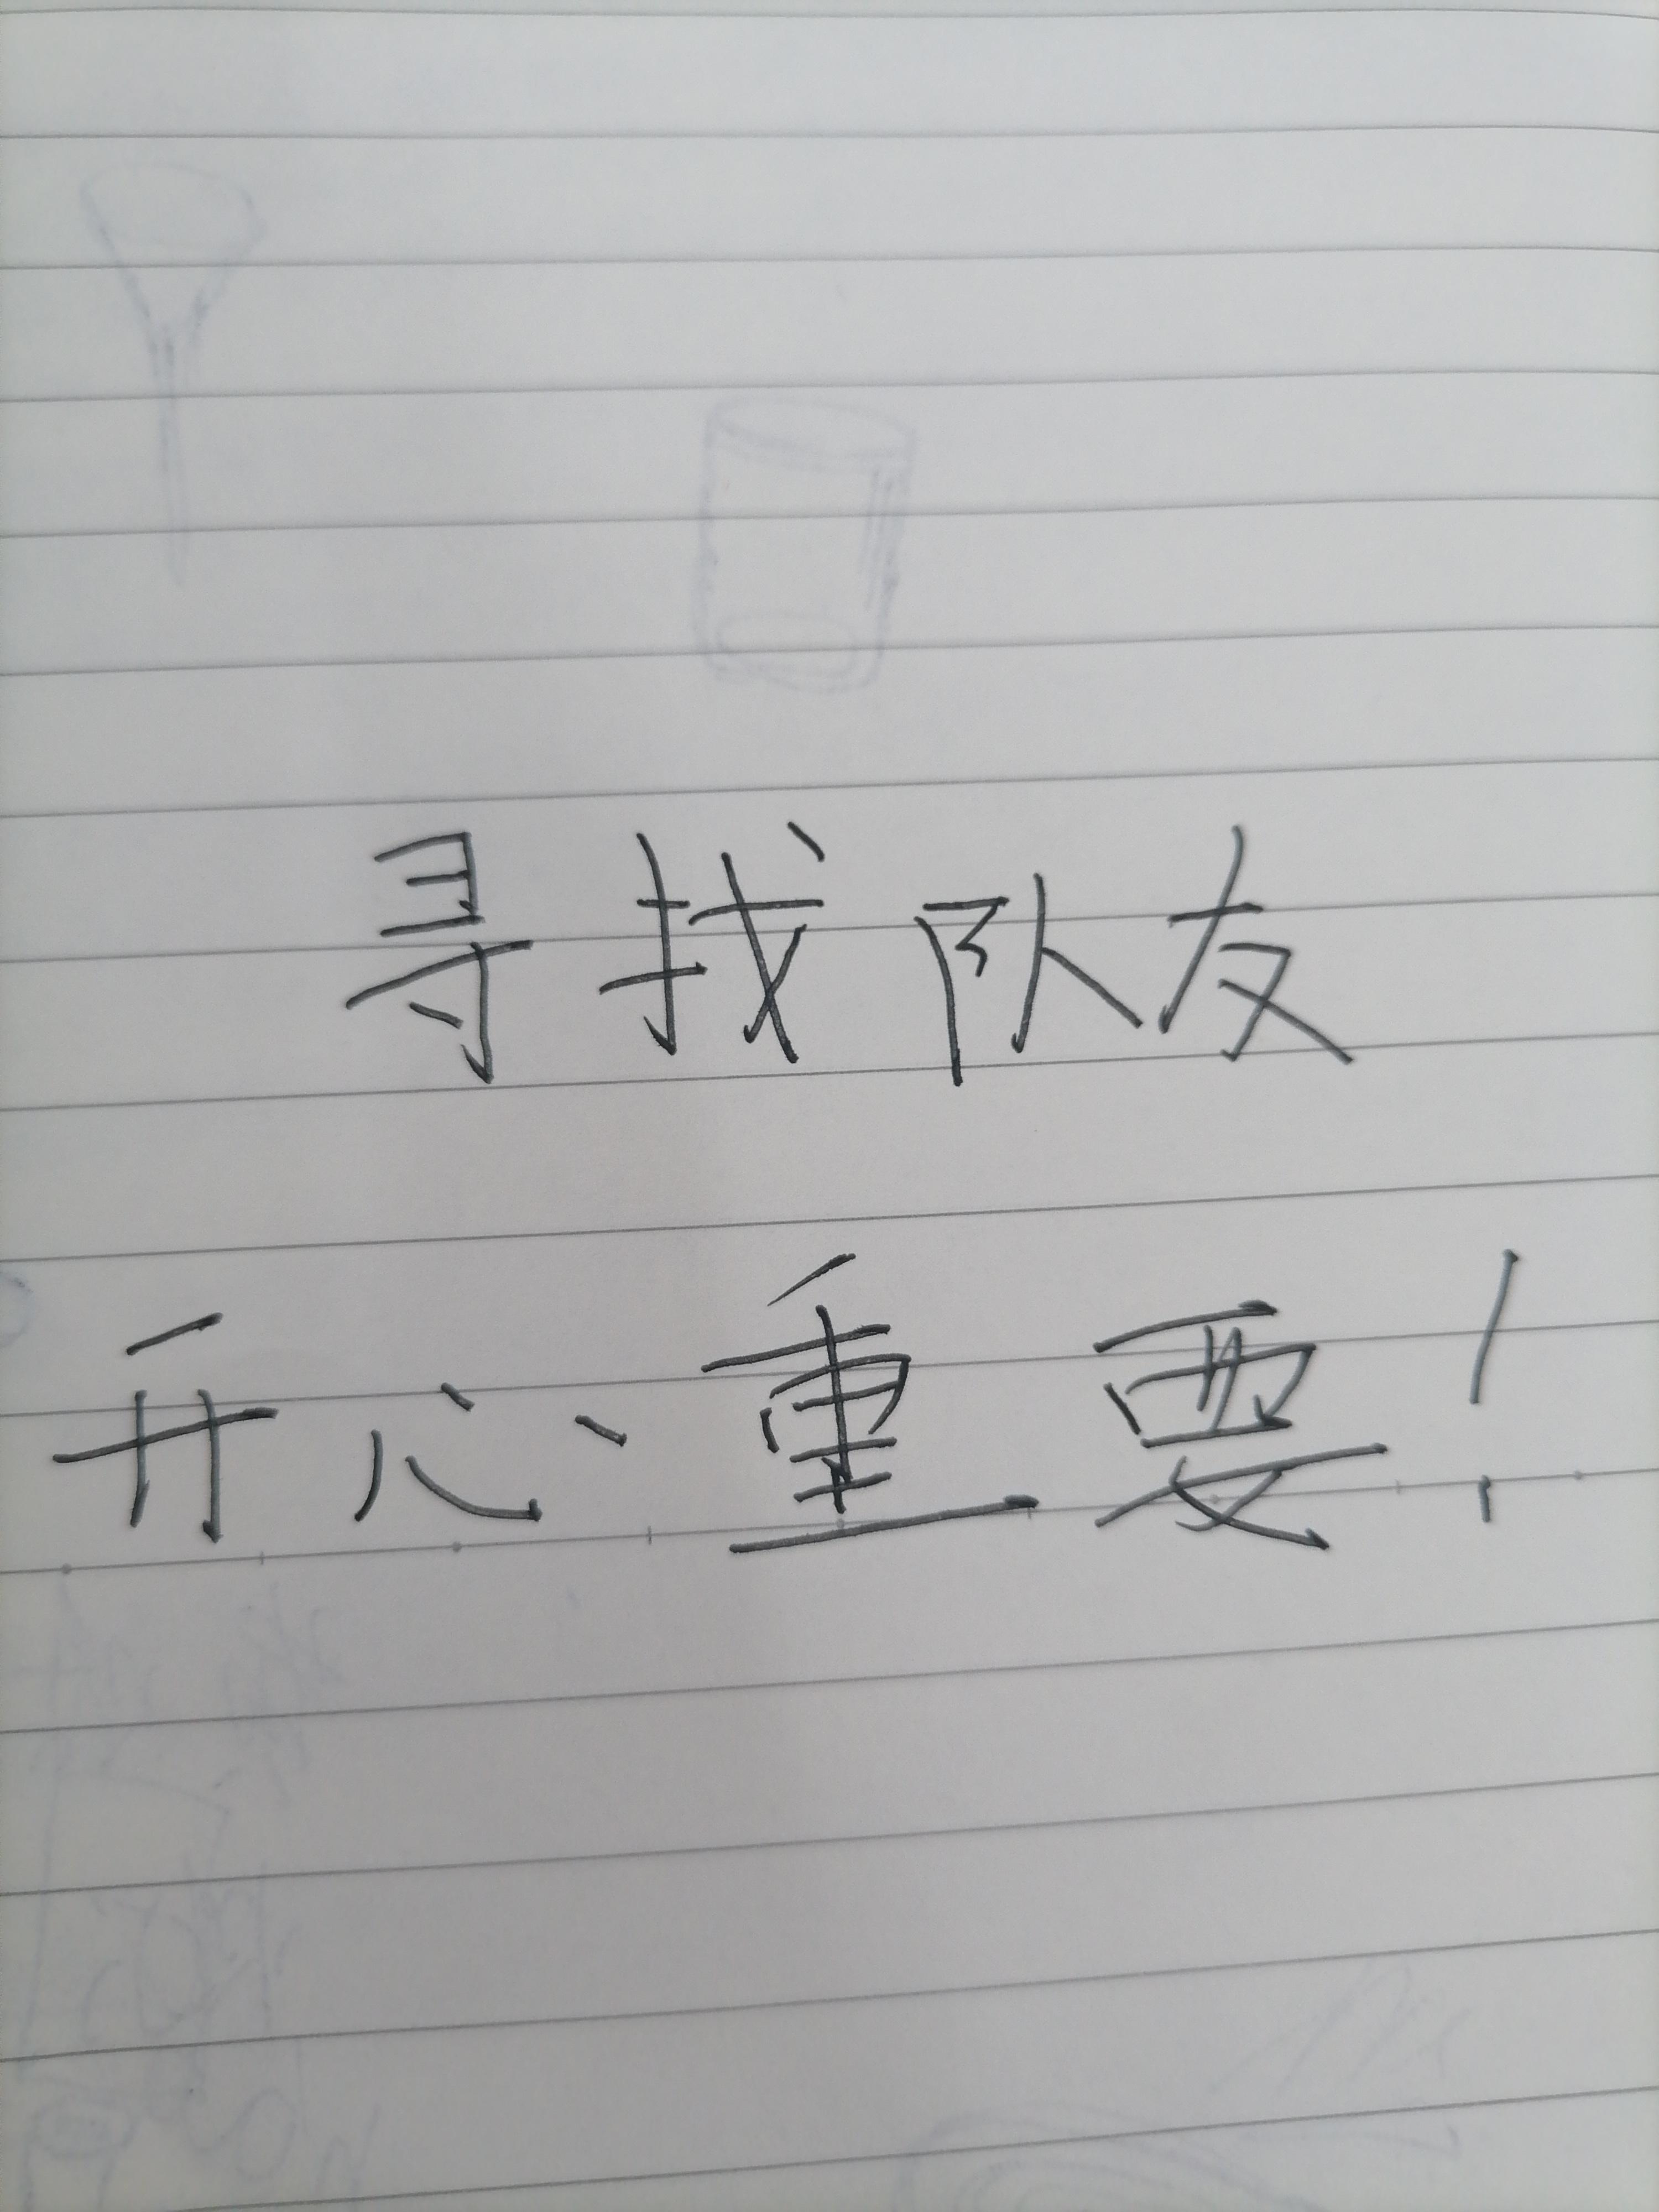 寻找队友
开心重要!